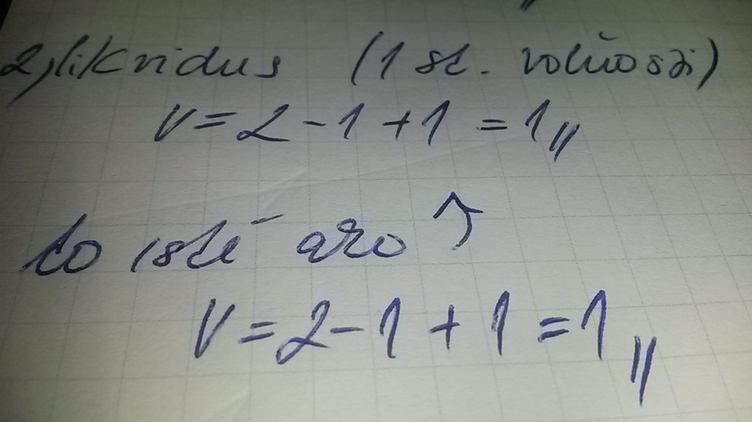 2, likvidus (1 st. voľnosti)
v = 2 - 1 + 1 = 1,,
to isté ako ↑
v = 2 - 1 + 1 = 1,,